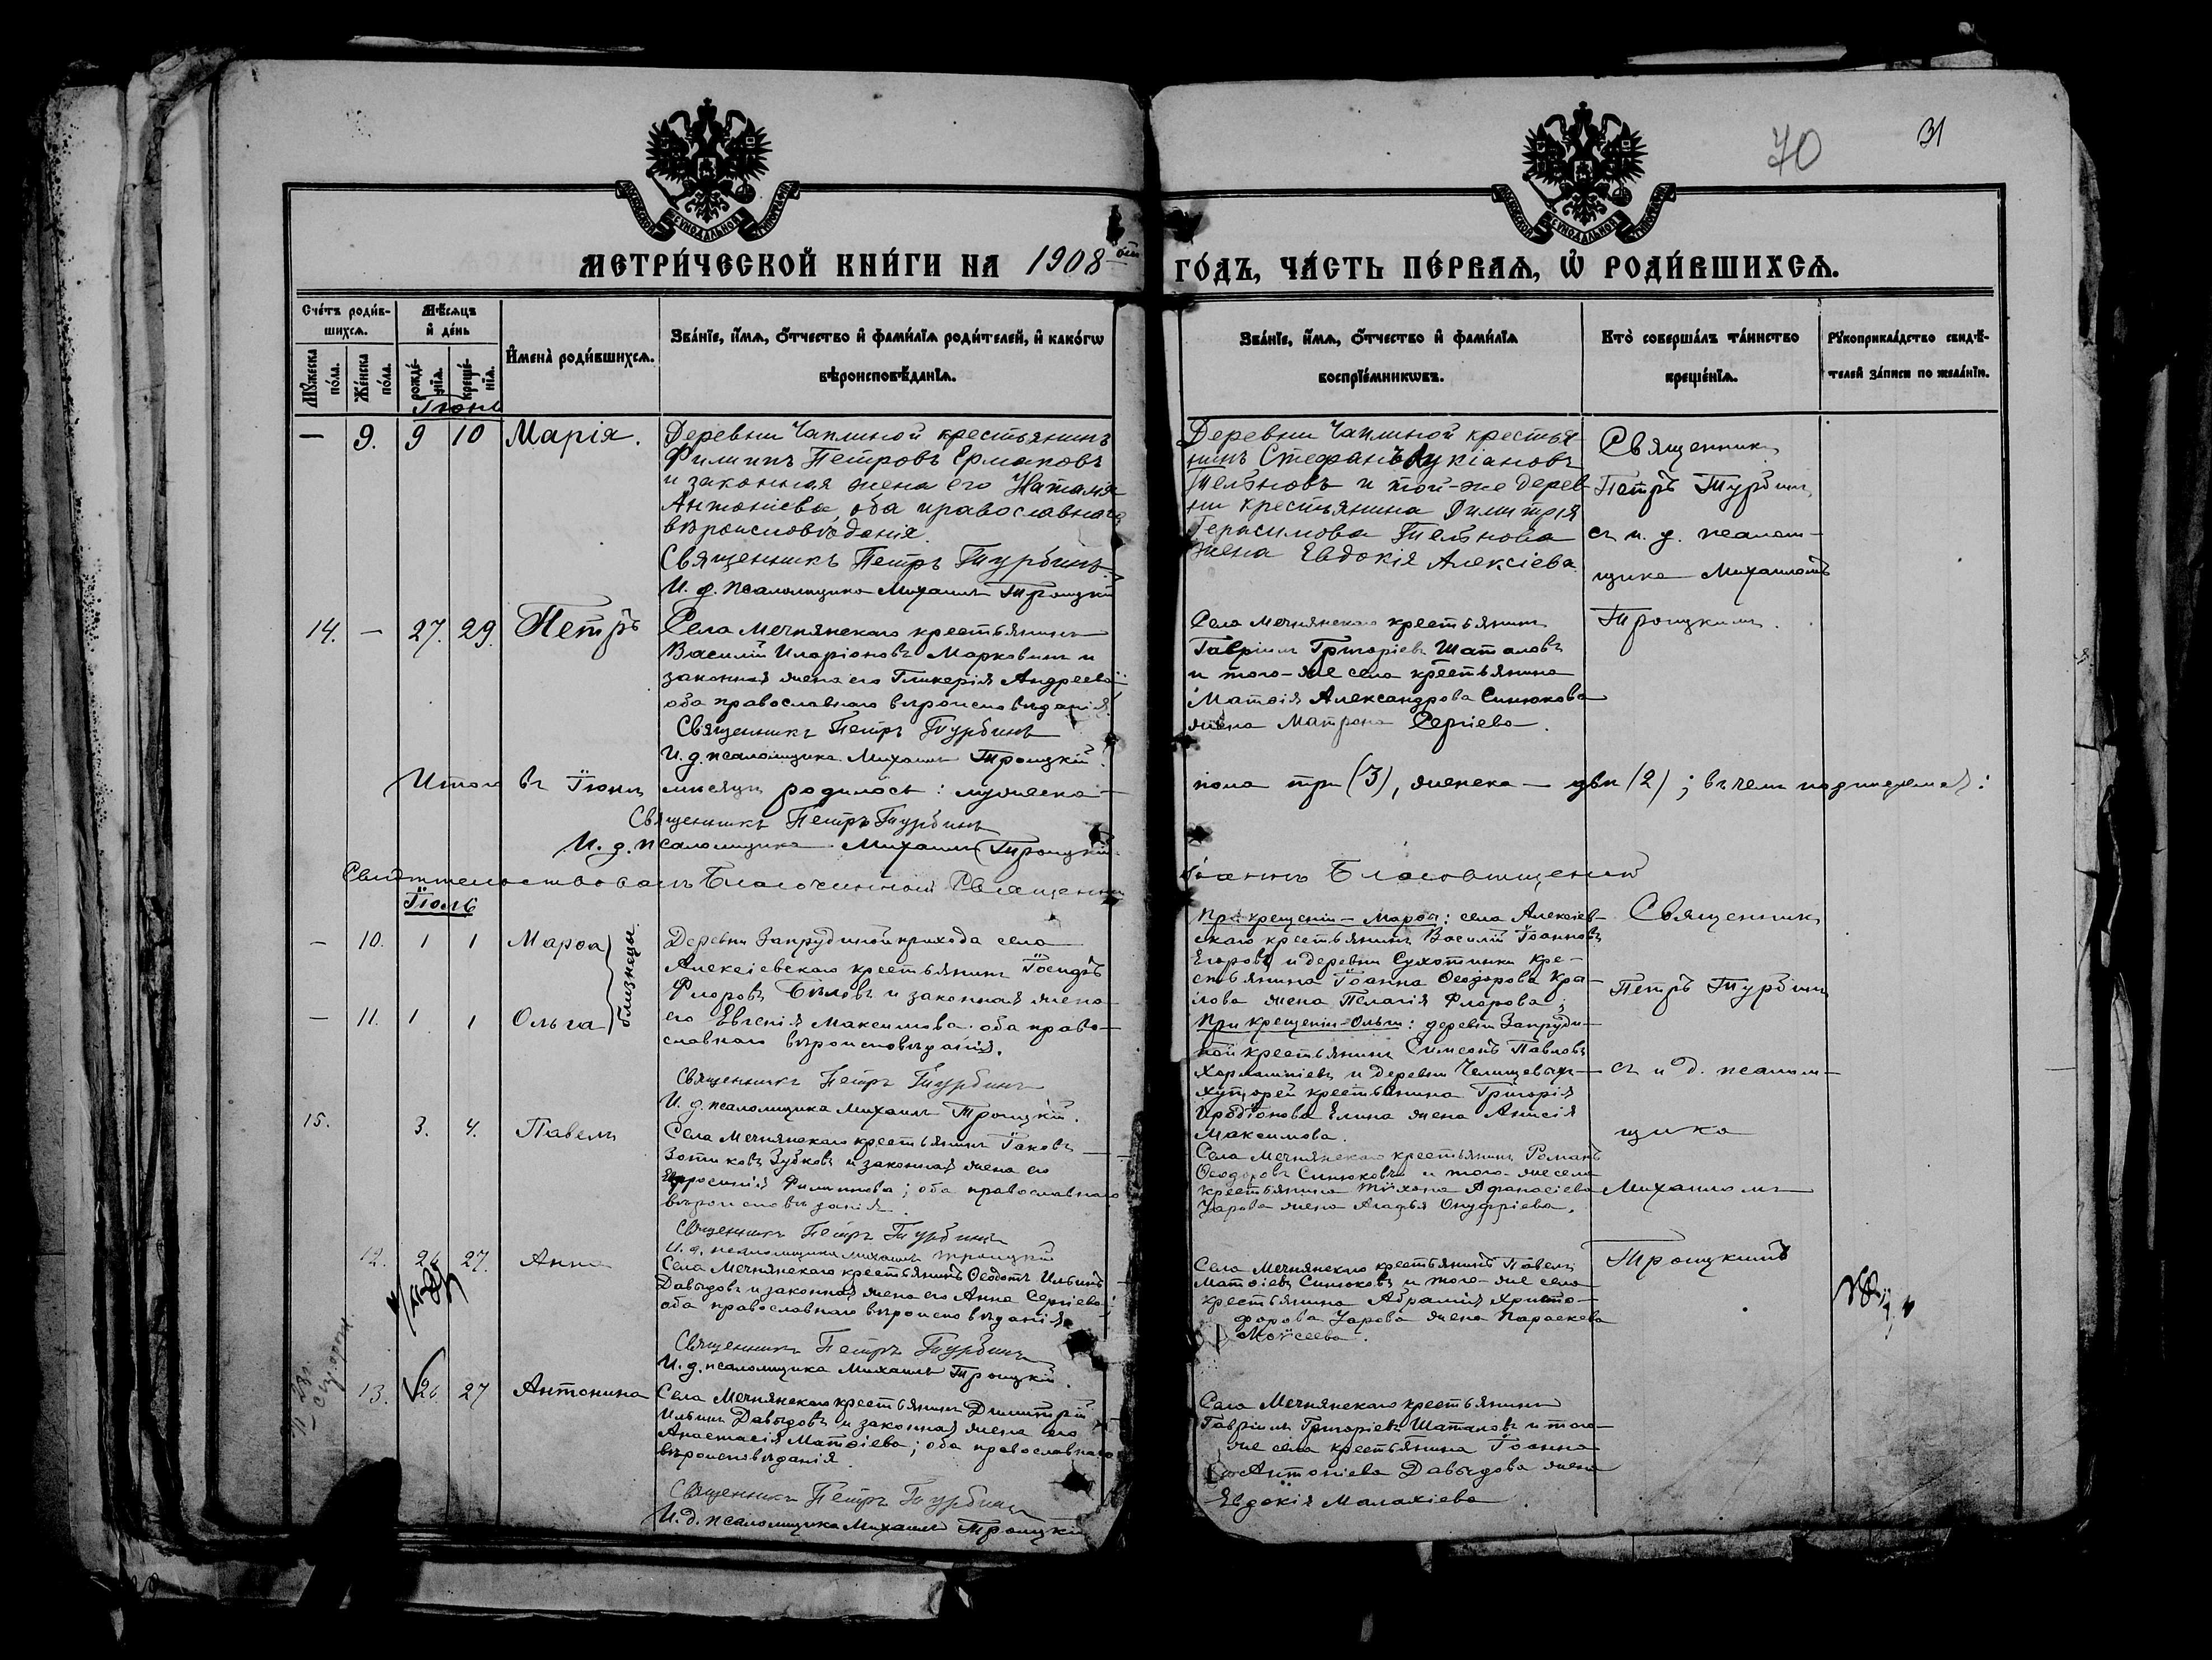 70
31
МЕТРИ́ЧЕСКОЙ КНИ́ГИ НА 1908 ой ГО́ДЪ, ЧА́СТЬ ПЕ́РВАѦ, Ѡ҆ РОДИ́ВШИХСѦ.
Сче́тъ роди́в-
шихсѧ.
Мꙋ́жеска по́ла.
Же́нска по́ла.
Мѣ́сѧцъ
и҆ де́нь
рожде́-
нїѧ.
креще́-
нїѧ.
И҆мена̀ роди́вшихсѧ.
Зва́нїе, и҆́мѧ, ѻ҆́тчество и҆ фами́лїѧ роди́телей, и҆ како́гѡ
вѣроисповѣ́данїѧ.
Зва́нїе, и҆́мѧ, ѻ҆́тчество и҆ фами́лїѧ
воспрїе́мникѡвъ.
Кто̀ соверша́лъ та́инство
креще́нїѧ.
Рꙋкоприкла́дство свидѣ́-
телей за́писи по жела́нїю.
Іюнь
— 9. 9 10 Марія.
Деревни Чаплиной крестьянинъ
Филиппъ Петровъ Ермаковъ
и законная жена его Наталія
Антоніева, оба православнаго
вѣроисповѣданія.
Священникъ Петръ Турбинъ
И. д. псаломщика Михаилъ Троицкій
Деревни Чаплиной крестья-
нинъ Стефанъ Лукіановъ
Тельновъ и той-же дерев-
ни крестьянина Димитрія
Герасимова Тельнова
жена Евдокія Алексіева.
Священникъ
Петръ Турбинъ
съ и. д. псалом-
щика Михаиломъ
Троицкимъ.
14. — 27. 29. Петръ
Села Мечнянскаго крестьянинъ
Василій Иларіоновъ Марковинъ и
законная жена его Гликерія Андреева
оба православнаго вѣроисповѣданія.
Священникъ Петръ Турбинъ
И. д. псаломщика Михаилъ Троицкій.
Села Мечнянскаго крестьянинъ
Гавріилъ Григоріевъ Шаталовъ
и того-же села крестьянина
Матѳія Александрова Синюкова
жена Матрона Сергіева.
Итого въ Іюнѣ мѣсяцѣ родилось: мужеска — пола три (3), женска — двѣ (2); въ чемъ подписуемся:
Священникъ Петръ Турбинъ
И. д. псаломщика Михаилъ Троицкій
Свидѣтельствовалъ Благочинный Священникъ Іоаннъ Благовѣщенскій
Іюль
— 10. 1 1 Марѳа
— 11. 1 1 Ольга
близнецы.
Деревни Запрудиной прихода села
Алексіевскаго крестьянинъ Іосифъ
Флоровъ Бѣловъ и законная жена
его Евгенія Максимова: оба право-
славнаго вѣроисповѣданія.
Священникъ Петръ Турбинъ
И. д. псаломщика Михаилъ Троицкій.
При крещеніи — Марѳы: села Алексіев-
скаго крестьянинъ Василій Іоанновъ
Егоровъ и деревни Сухотинки кре-
стьянина Іоанна Ѳеодорова
жена Пелагія Флорова;
При крещеніи — Ольги: деревни Запруди-
ной крестьянинъ Симеонъ Павловъ
и деревни
хуторей крестьянина Григорія
Иродіонова Елина жена Анисія
Максимова.
Священникъ
Петръ Турбинъ
съ и. д. псалом-
щика
Михаиломъ
Троицкимъ
15. 3. 4. Павелъ
Села Мечнянскаго крестьянинъ Іаковъ
Зотиковъ Зубковъ и законная жена его
Евфросинія Филиппова; оба православнаго
вѣроисповѣданія.
Священникъ Петръ Турбинъ
И. д. псаломщика Михаилъ Троицкій
Села Мечнянскаго крестьянинъ Романъ
Ѳеодоровъ Синюковъ и того-же села
крестьянина Тихона Аѳанасіева
Уарова жена Агафья Онуфріева.
12. 26 27. Анна
Села Мечнянскаго крестьянинъ Ѳеодотъ Ильинъ
Давыдовъ и законная жена его Анна Сергіева:
оба православнаго вѣроисповѣданія.
Священникъ Петръ Турбинъ
И. д. псаломщика Михаилъ Троицкій.
Села Мечнянскаго крестьянинъ Павелъ
Матѳіевъ Синюковъ и того-же села
крестьянина Абрамія Христо-
форова Уарова жена Параскева
Моисеева.
13. 26. 27 Антонина
Села Мечнянскаго крестьянинъ Димитрій
Ильинъ Давыдовъ и законная жена его
Анастасія Матѳіева; оба православнаго
вѣроисповѣданія.
Священникъ Петръ Турбинъ
И. д. псаломщика Михаилъ Троицкій
Села Мечнянскаго крестьянинъ
Гавріилъ Григоріевъ Шаталовъ и того-
же села крестьянина Іоанна
Антоніева Давыдова жена
Евдокія Малахіева